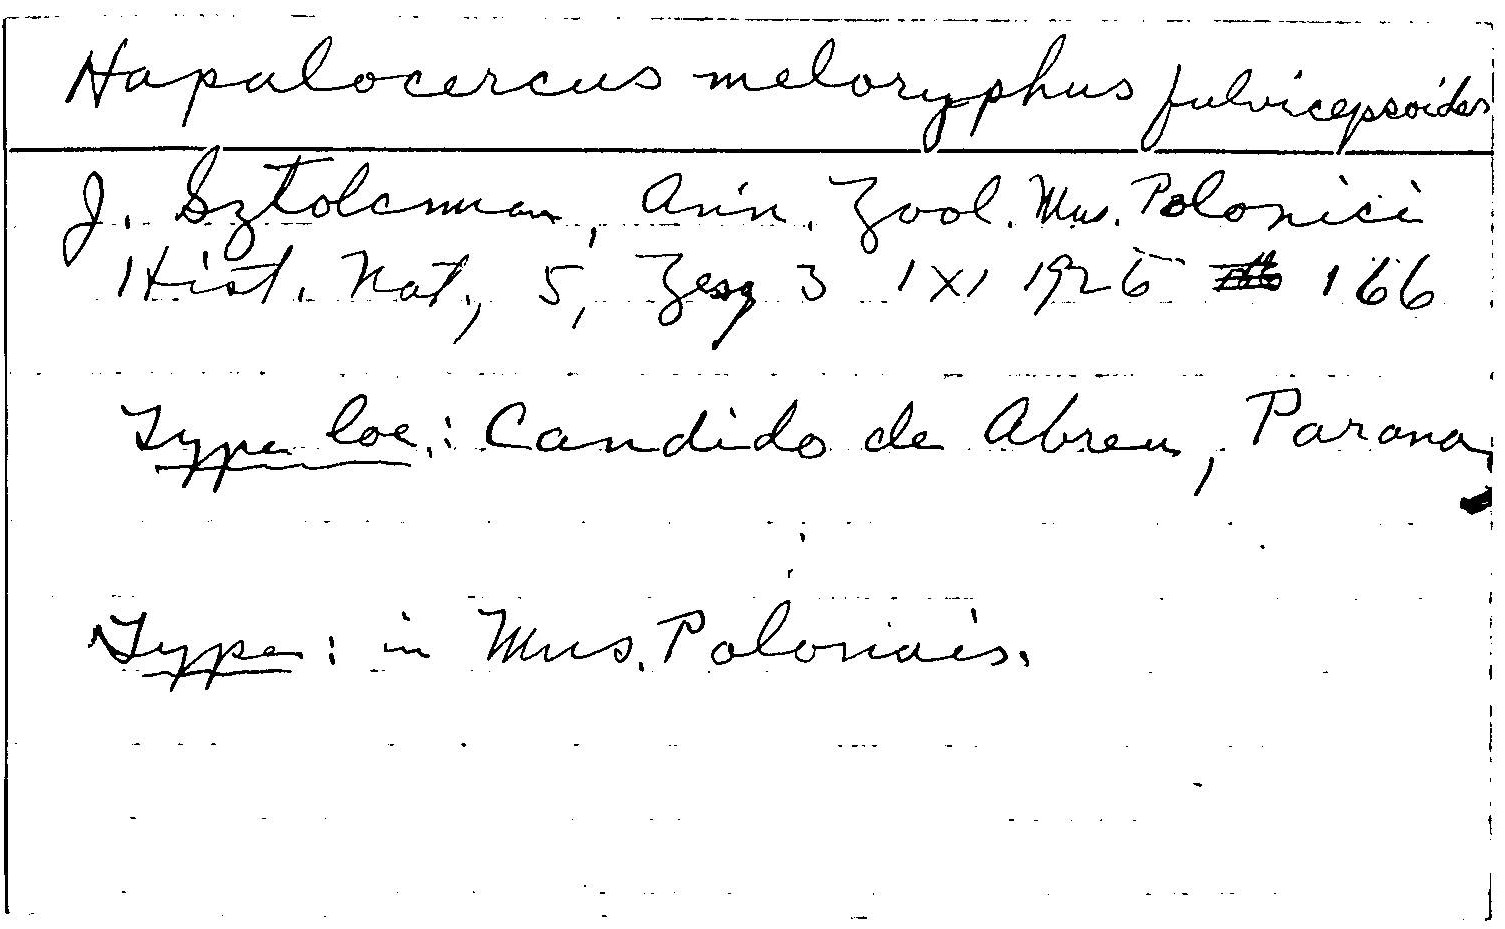 Hapalocercus meloryphus fulvicepsoides
J. Sztolcman, Ann. Zool. Mus. Polonici
Hist. Nat., 5, Zesz 3 1 XI 1926 166
Type loc.: Candido de Abreu, Parana
Type: in Mus. Polonais.